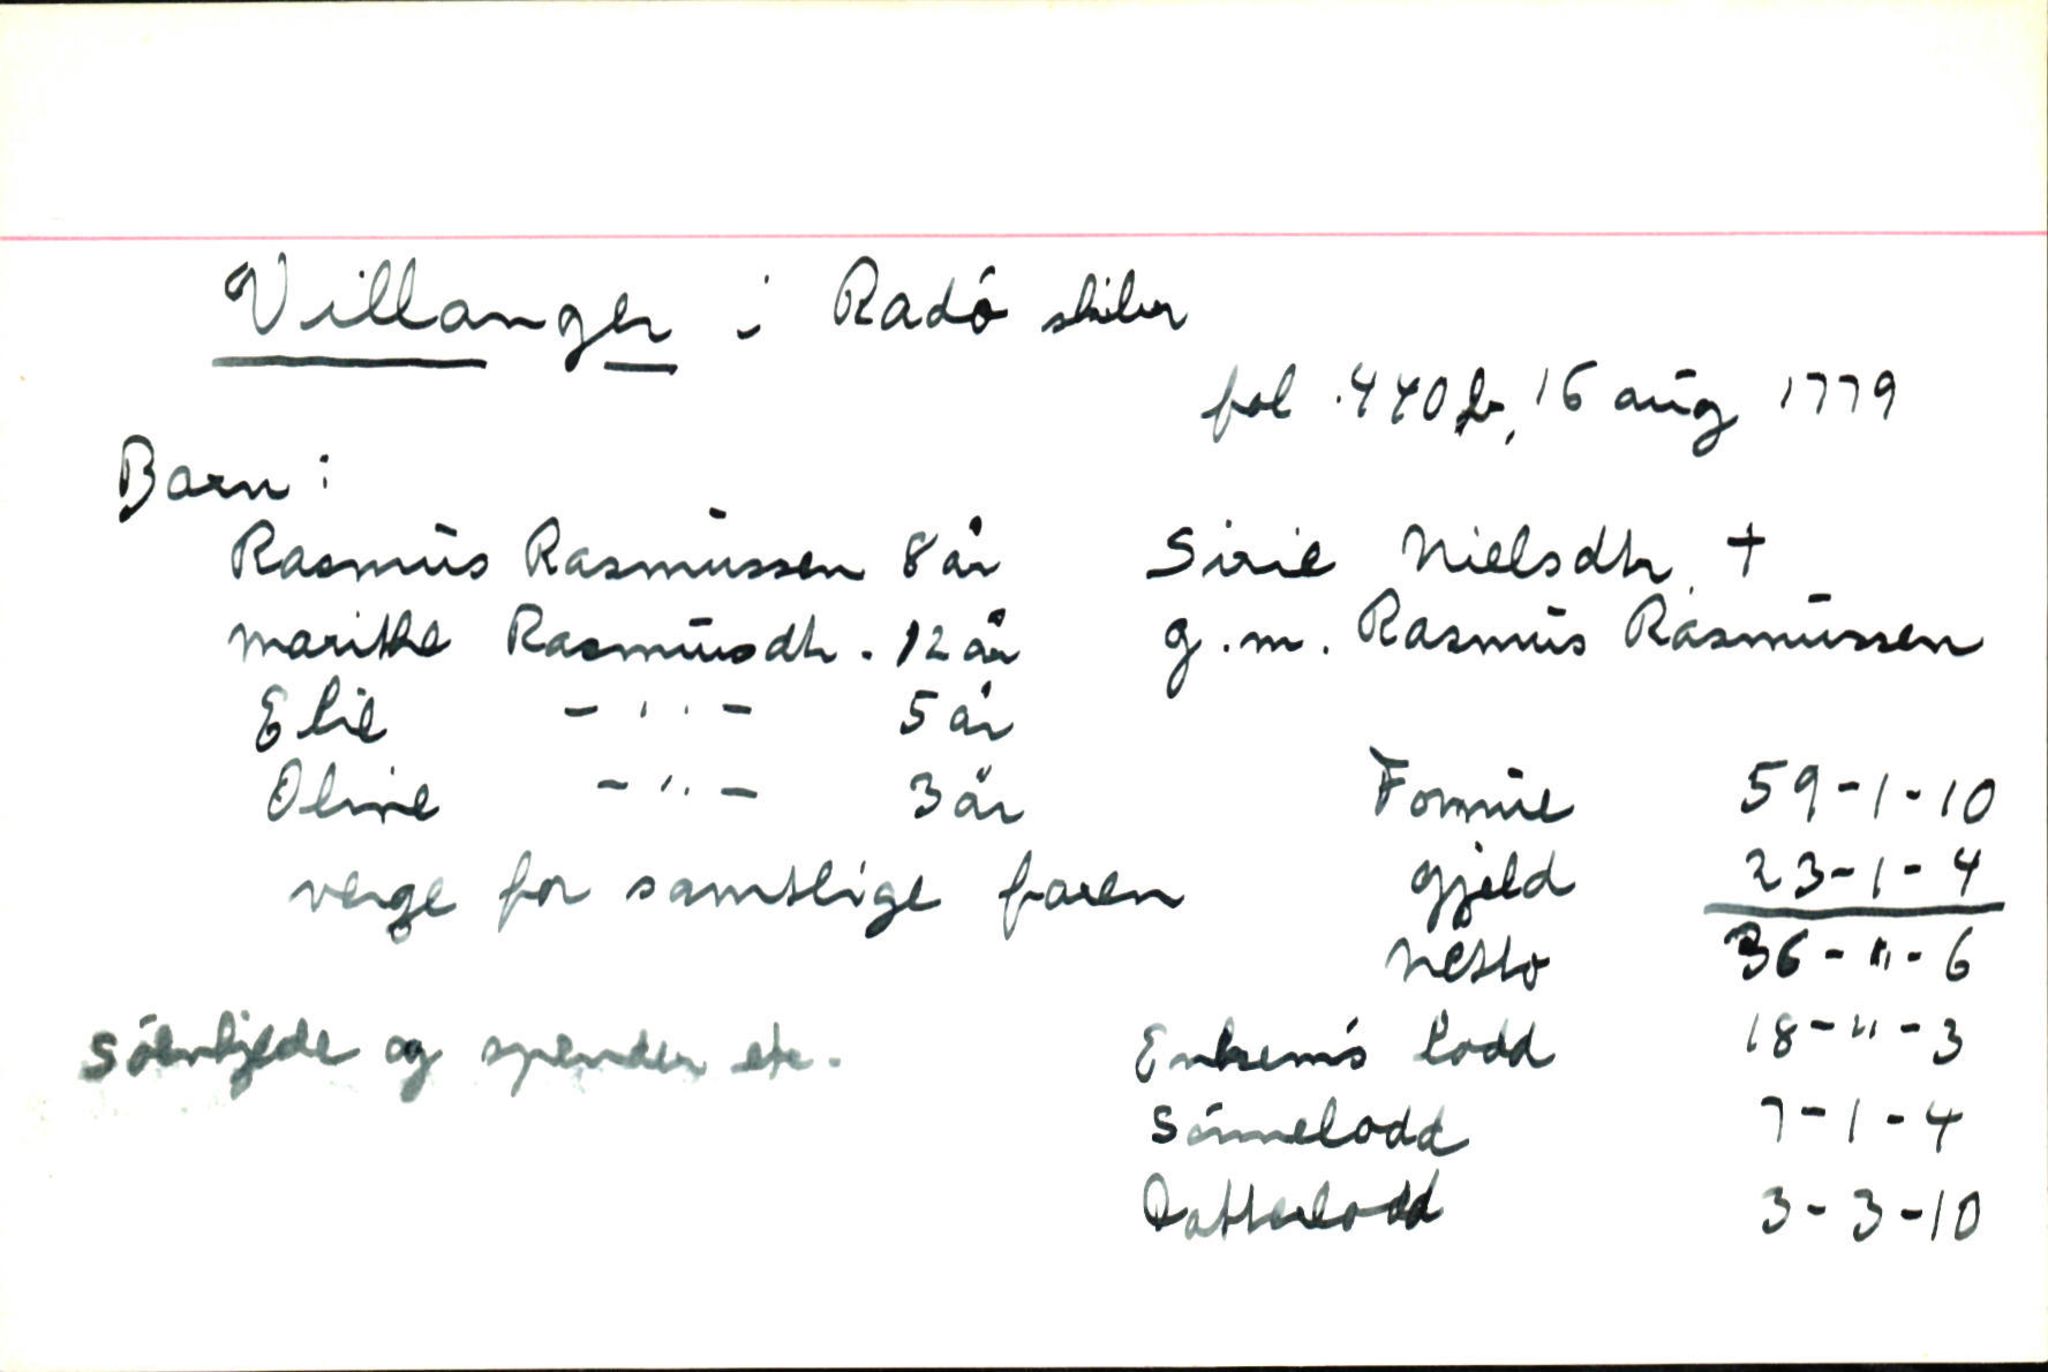 Villanger i Radö skiber
fol. 440 b, 16 aug 1779
Barn:
Rasmus Rasmussen 8 år
Marithe Rasmusdtr. 12 år
Elie -"- 5 år
Oline -"- 3 år
verge for samtlige faren
Sirie Nielsdtr. +
g.m. Rasmus Rasmussen
Formue 59-1-10
Gjeld 23-1-4
Netto 36-"-6
Enkem's lodd 18-"-3
Sönnelodd 7-1-4
Datterlodd 3-3-10
Sölvkjede og spender etc.